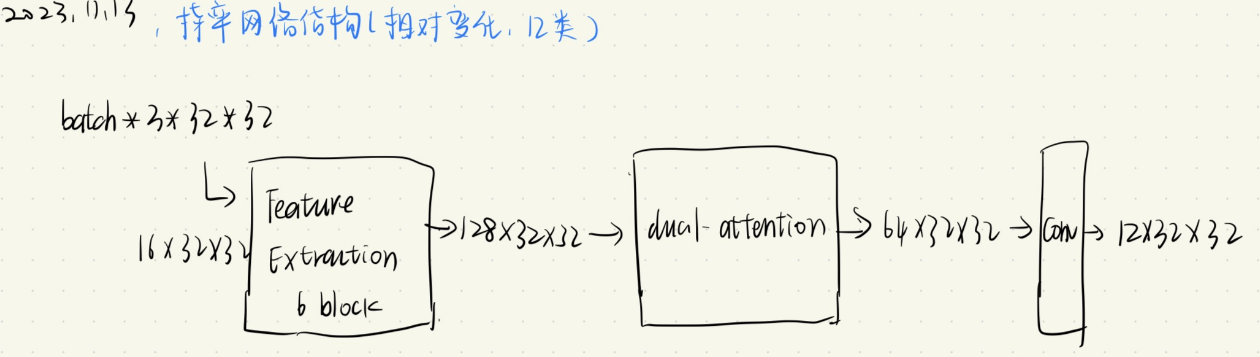 2023.11.13, 网络结构(相对变化, 12类)
batch*3*32*32
16×32×32
Feature
Extraction
6 block
→128×32×32→
dual-attention
→64×32×32→
Conv
→12×32×32